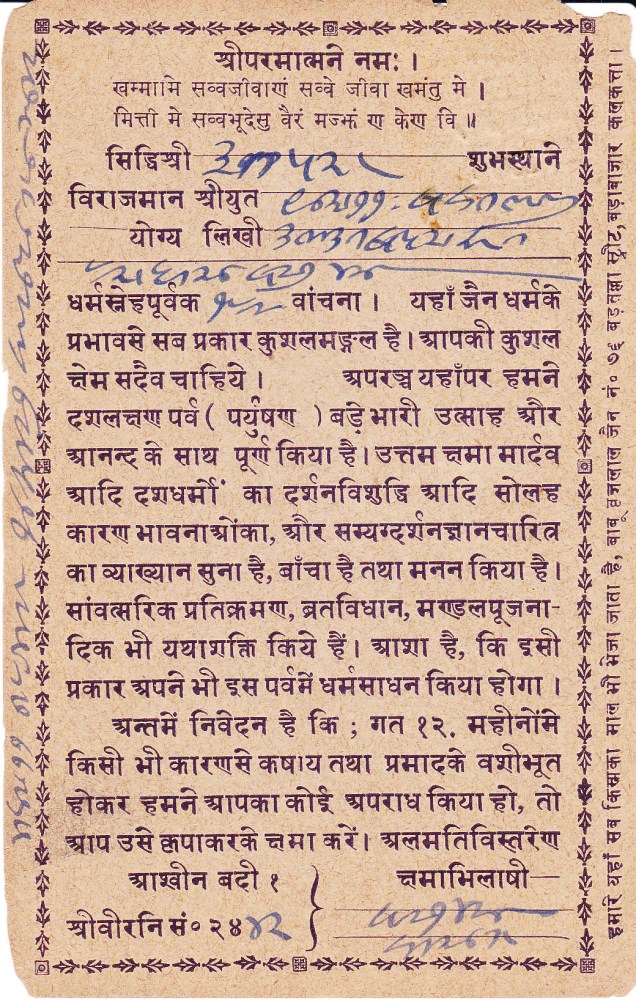 श्रीपरमात्मने नमः।
खम्मामि सव्वजीवाणं सव्वे जीवा खमंतु मे।
मित्ती मे सव्वभूदेसु वैरं मज्झं ण केण वि॥
सिद्धिश्री शुभस्थाने
विराजमान श्रीयुत
योग्य लिखी
धर्मस्नेहपूर्वक वांचना। यहाँ जैन धर्मके
प्रभावसे सब प्रकार कुशलमङ्गल है। आपकी कुशल
क्षेम सदैव चाहिये। अपरञ्च यहाँपर हमने
दशलक्षण पर्व (पर्युषण) बड़े भारी उत्साह और
आनन्द के साथ पूर्ण किया है। उत्तम क्षमा मार्दव
आदि दशधर्मों का दर्शनविशुद्धि आदि सोलह
कारण भावनाओंका, और सम्यग्दर्शनज्ञानचारित्र
का व्याख्यान सुना है, बाँचा है तथा मनन किया है।
सांवत्सरिक प्रतिक्रमण, ब्रतविधान, मण्डलपूजना-
दिक भी यथाशक्ति किये हैं। आशा है, कि इसी
प्रकार अपने भी इस पर्वमें धर्मसाधन किया होगा।
अन्तमें निवेदन है कि; गत १२. महीनोंमे
किसी भी कारणसे कषाय तथा प्रमादके वशीभूत
होकर हमने आपका कोई अपराध किया हो, तो
आप उसे कृपाकरके क्षमा करें। अलमतिविस्तरेण
आश्वीन बदी १ क्षमाभिलाषी—
श्रीवीरनि सं० २४४२
हमारे यहाँ सब किस्मका माल भी भेजा जाता है, बाबू बृजलाल जैन नं० ७६ बड़तल्ला स्ट्रीट, बड़ाबाजार कलकत्ता।